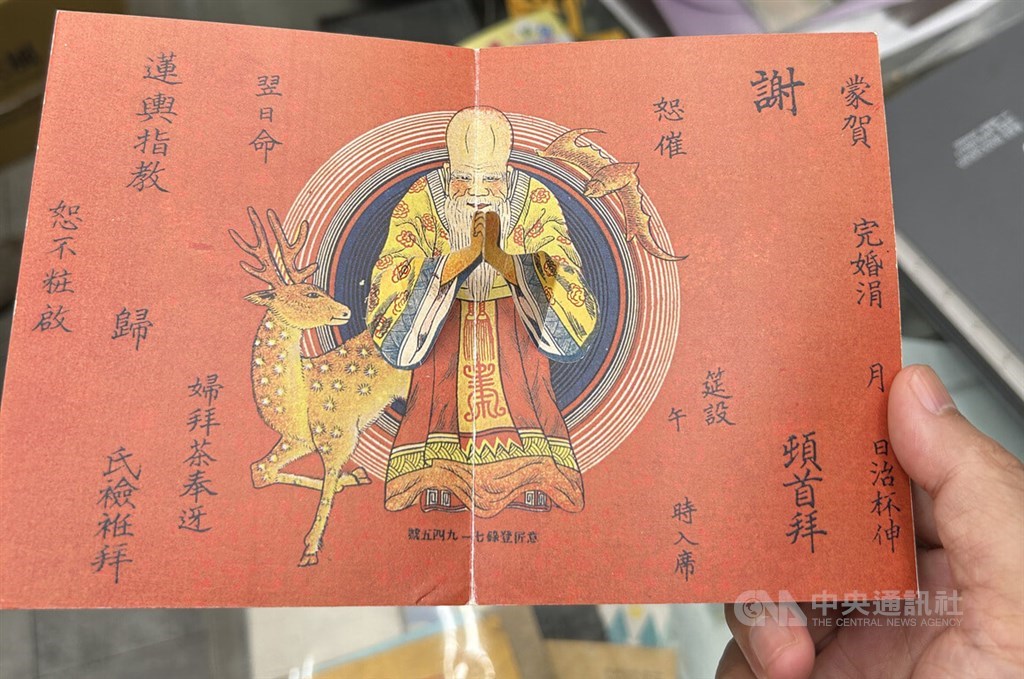 蒙賀
完婚涓
月
日治杯伸
謝
頓首拜
恕催
筵設
午
時入席
翌日命
婦拜茶奉迓
蓮輿指教
歸
氏檢袵拜
恕不粧啟
意匠登錄七一九四五號
中央通訊社
THE CENTRAL NEWS AGENCY